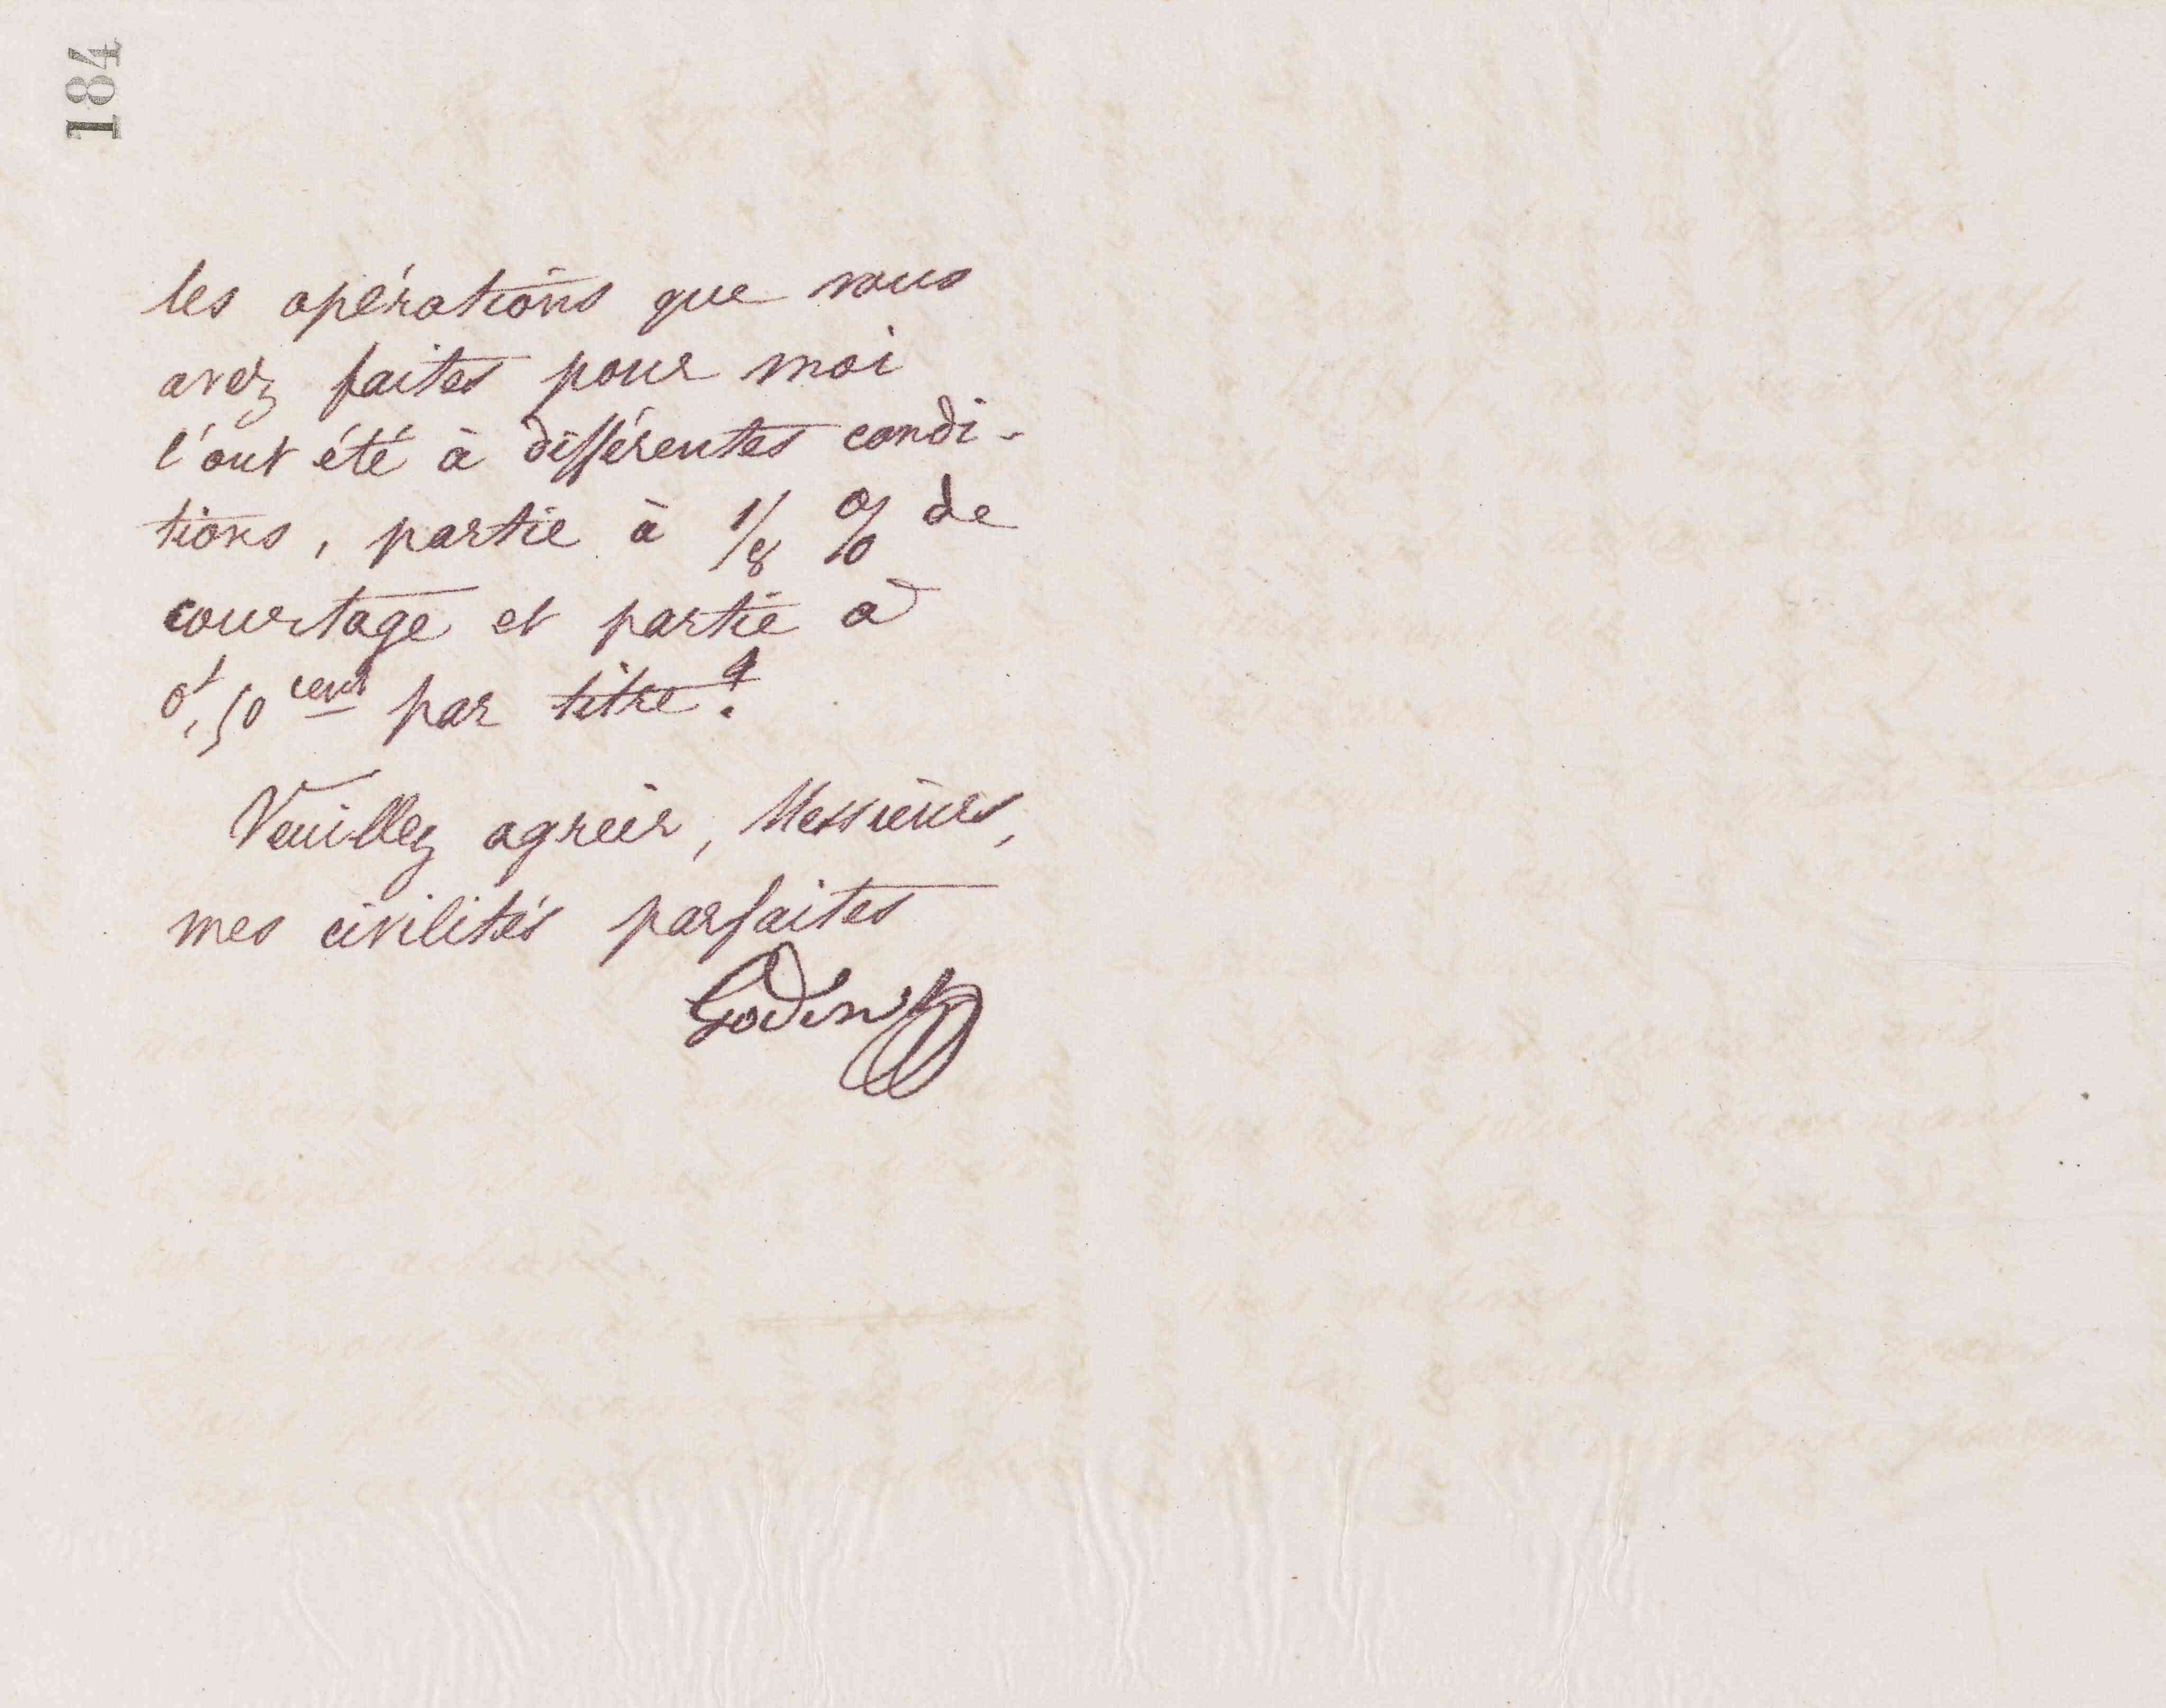 184
les opérations que vous
avez faites pour moi
l'ont été à différentes condi-
tions, partie à 1/8 % de
courtage et partie à
0f,50 cent par titre?
Veuillez agréer, Messieurs,
mes civilités parfaites
Godin